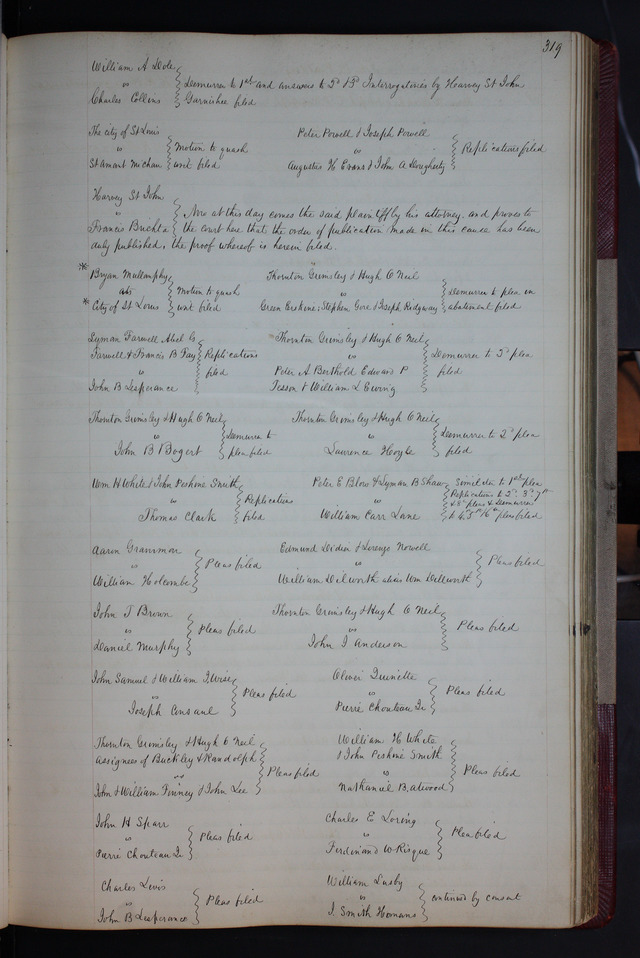 319
William A Dole
vs
Charles Collins
Demurrer to 1st and answers to 2d & 3d Interrogatories by Harvey St John
Garnishee filed
The city of St Louis
vs
St Amant Michau
Motion to quash
writ filed
Peter Powell & Joseph Powell
vs
Augustus H Evans & John A Dougherty
Replications filed
Harvey St John
vs
Francis Buchta
Now at this day comes the said plaintiff by his attorney, and proves to
the court here that the order of publication made in this cause has been
duly published, the proof whereof is herein filed.
* Bryan Mullanphy
vs
* City of St Louis
Motion to quash
writ filed
Thornton Grimsley & Hugh O Neil
vs
Green Erskine, Stephen Gore & Joseph Ridgway
Demurrer to plea in
abatement filed
Lyman Farwell Abel G
Farwell & Francis B Fay
vs
John B Lesperance
Replications
filed
Thornton Grimsley & Hugh O Neil
vs
Peter A Berthold Edward P
Tesson & William L Ewing
Demurrer to 3d plea
filed
Thornton Grimsley & Hugh O Neil
vs
John B Bogert
Demurrer to
plea filed
Thornton Grimsley & Hugh O Neil
vs
Lawrence
Demurrer to 2d plea
filed
Wm H White & John Perkine Smith
vs
Thomas Clark
Replications
filed
Peter E Blow & Lyman B Shaw
vs
William Carr Lane
Similiter to 1st plea
Replications to 2d, 3d 7th
& 8th pleas & Demurrer
to 4, 5th & 6th pleas filed
Aaron Grannmon
vs
William Holcombe
Pleas filed
Edmund Diden & Lorenzo Nowell
vs
William Dilworth alias Wm Dillworth
Pleas filed
John T Brown
vs
Daniel Murphy
Pleas filed
Thornton Grimsley & Hugh O Neil
vs
John J Anderson
Pleas filed
John Samuel & William J. Wise
vs
Joseph Consaul
Pleas filed
Oliver Quinette
vs
Pierre Chouteau Jr
Pleas filed
Thornton Grimsley & Hugh O Neil
assignees of Buckley & Randolph
vs
John & William Finney & John Lee
Pleas filed
William H White
& John Perkine Smith
vs
Nathaniel B. Atwood
Pleas filed
John H Sparr
vs
Pierre Chouteau Jr
Pleas filed
Charles E Loring
vs
Ferdinand W Risque
Plea filed
Charles Levis
vs
John B Lesperance
Pleas filed
William Lusby
vs
J. Smith Homans
continued by consent